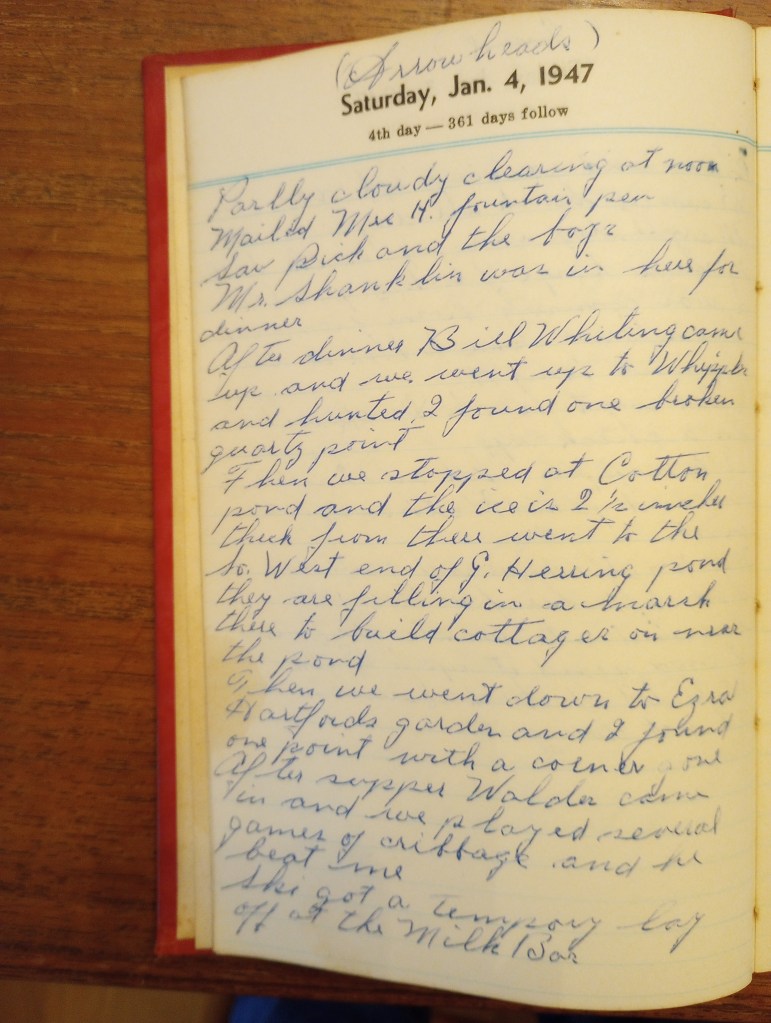 (Arrow heads)
Saturday, Jan. 4, 1947
4th day — 361 days follow
Partly cloudy clearing at noon
Mailed Mrs H. fountain pen
Saw Dick and the boys
Mr. Shanklin was in here for
dinner
After dinner Bill Whiting came
up and we went up to
and hunted, I found one broken
quartz point
Then we stopped at Cotton
pond and the ice is 2 1/2 inches
thick from there went to the
So. West end of G. Herring pond
they are filling in a marsh
there to build cottages on near
the pond
Then we went down to Ezra
Hartfords garden and I found
one point with a corner gone
After supper Walder came
in and we played several
games of cribbage and he
beat me
She got a tempory lay
off at the Milk Bar